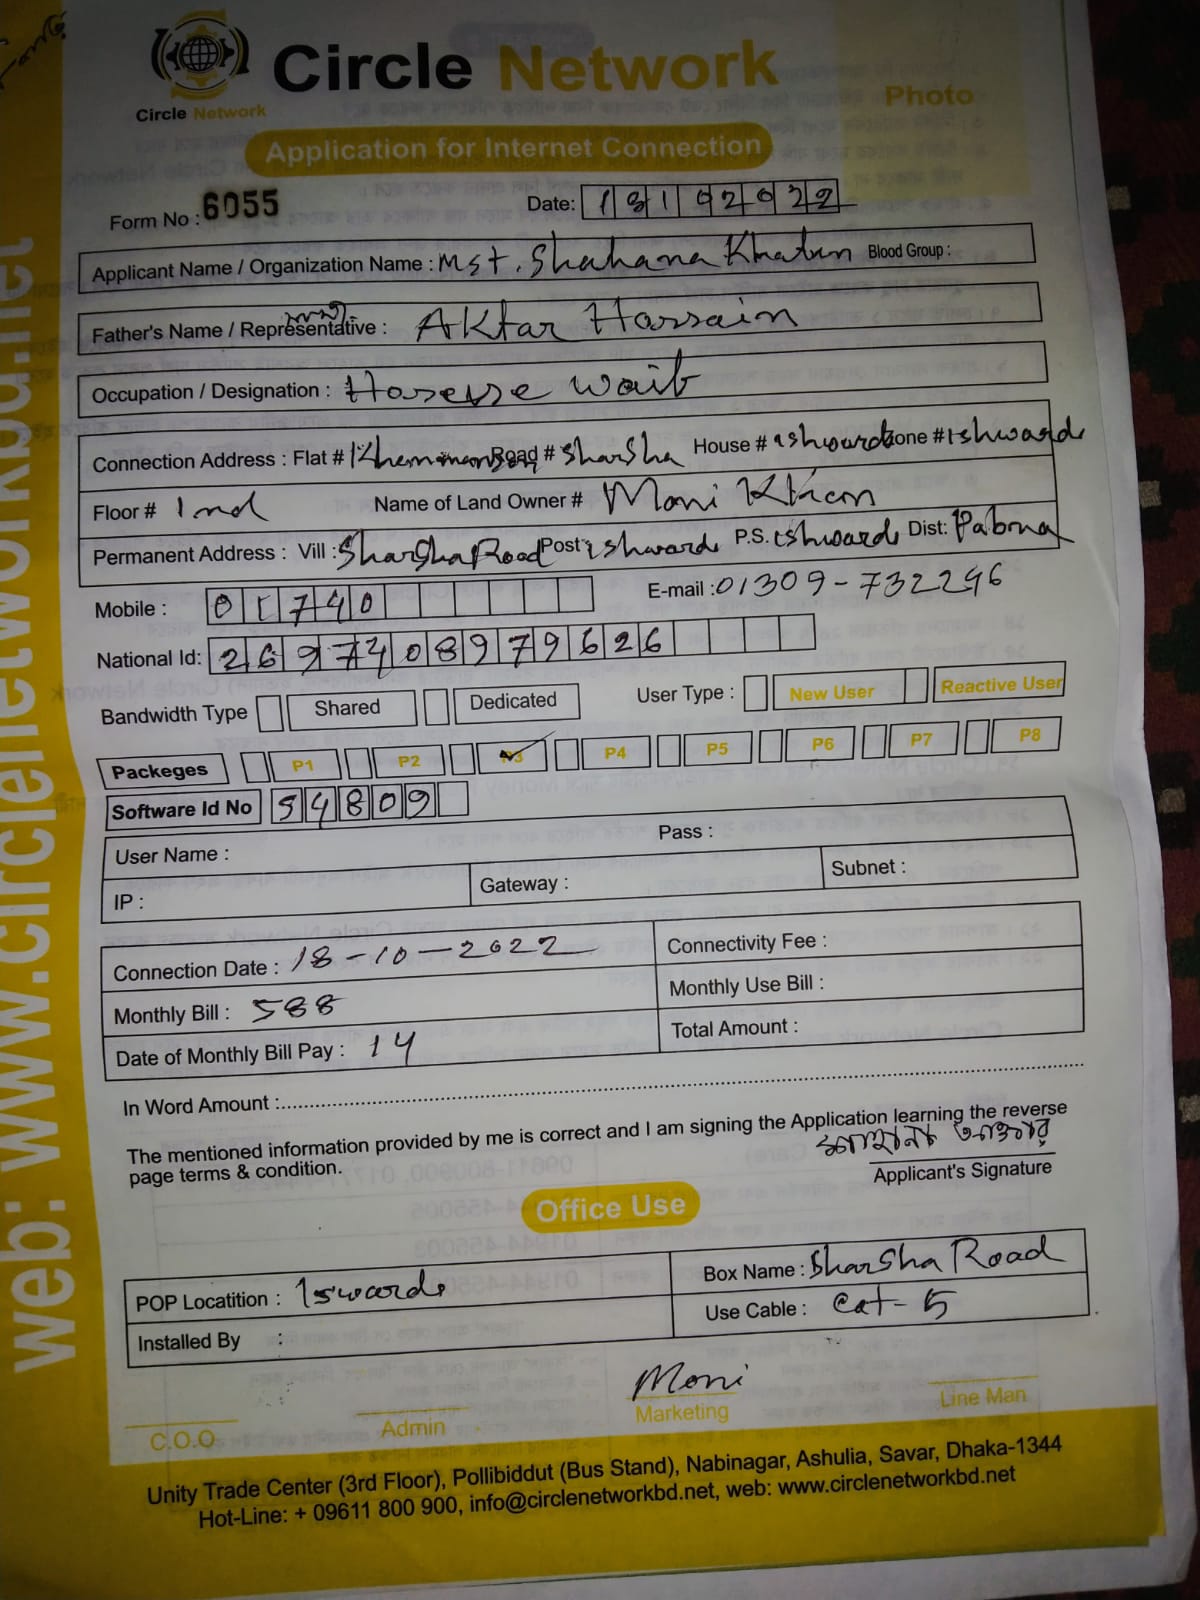 Circle Network
Circle Network
Photo
Application for Internet Connection
Form No : 6055
Date: 18102022
Applicant Name / Organization Name : Mst. Shahana Khatun Blood Group :
Father's Name / Representative : Aktar Hossain
Occupation / Designation :
Connection Address : Flat # Road # Sharsha House # ishwardi Zone # ishwardi
Floor # 1nd Name of Land Owner # Moni Khan
Permanent Address : Vill : Sharsha Road Post : ishwardi P.S. ishwardi Dist: Pabna
Mobile : 01740 E-mail : 01309-732246
National Id: 2697408979626
Bandwidth Type Shared Dedicated User Type : New User Reactive User
Packeges P1 P2 P3 P4 P5 P6 P7 P8
Software Id No 54809
User Name : Pass :
IP : Gateway : Subnet :
Connection Date : 18-10-2022 Connectivity Fee :
Monthly Bill : 588 Monthly Use Bill :
Date of Monthly Bill Pay : 14 Total Amount :
In Word Amount :
The mentioned information provided by me is correct and I am signing the Application learning the reverse
page terms & condition.
Applicant's Signature
Office Use
POP Locatition : Iswardi Box Name : Sharsha Road
Installed By : Use Cable : Cat-5
Moni
C.O.O Admin Marketing Line Man
Unity Trade Center (3rd Floor), Pollibiddut (Bus Stand), Nabinagar, Ashulia, Savar, Dhaka-1344
Hot-Line: + 09611 800 900, info@circlenetworkbd.net, web: www.circlenetworkbd.net
web: www.circlenetworkbd.net